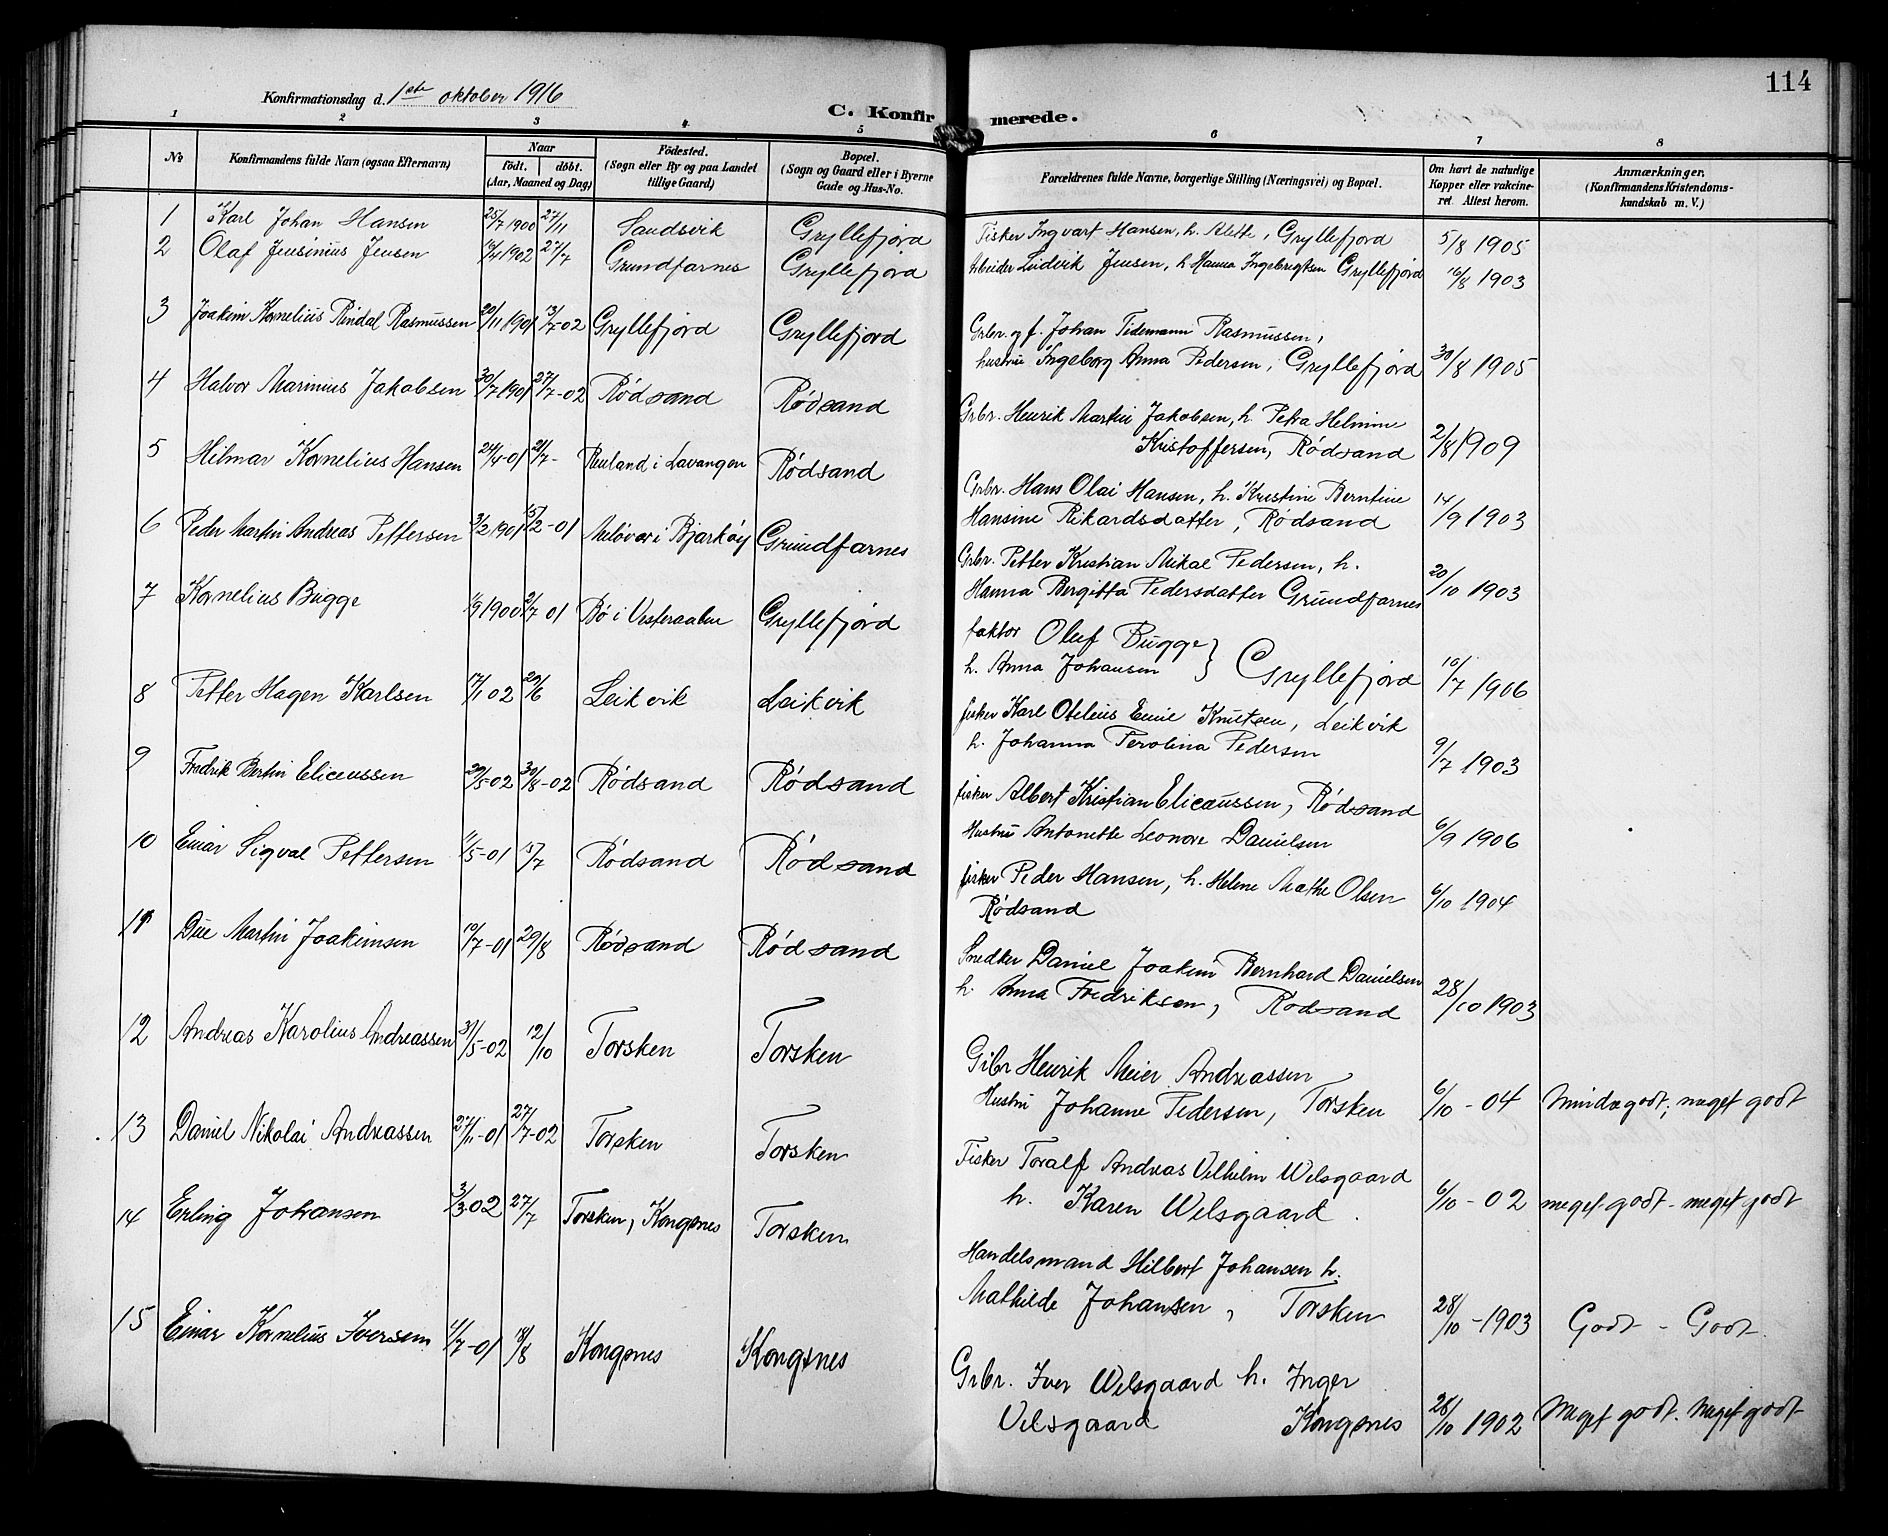 114
Konfirmationsdag d. 1ste oktober 1916
C. Konfirmerede.
1 2 3 4 5 6 7 8
No
Konfirmandens fulde Navn (ogsaa Efternavn)
Naar
født. døbt.
(Aar, Maaned og Dag)
Fødested.
(Sogn eller By og paa Landet
tillige Gaard)
Bopæl.
(Sogn og Gaard eller i Byerne
Gade og Hus-No.
Forældrenes fulde Navne, borgerlige Stilling (Næringsvei) og Bopæl.
Om havt de naturlige
Kopper eller vakcine-
ret. Attest herom.
Anmærkninger.
(Konfirmandens Kristendoms-
kundskab m. V.)
1 Karl Johan Hansen 25/7 1900 27/11 Sandsvik Gryllefjord Fisker Ingvart Hansen, h. Alette, Gryllefjord 5/8 1905
2 Olaf Jensinius Jensen 14/4 1902 27/7 Grundfarnes Gryllefjord Arbeider Ludvik Jensen, h. Hanna Ingebrigtsen Gryllefjord 16/8 1903
3 Joakim Kornelius Rindal Rasmussen 20/11 1901 13/7-02 Gryllefjord Gryllefjord Grbr. og f. Johan Tidemann Rasmussen,
hustru Ingeborg Anna Pedersen, Gryllefjord 30/8 1905
4 Halvor Marinius Jakobsen 30/7 1901 27/7-02 Rødsand Rødsand Grbr. Henrik Martin Jakobsen, h. Petra Helmine
Kristoffersen, Rødsand 2/8 1909
5 Hilmar Kornelius Hansen 24/4-01 21/7- Renland i Lavangen Rødsand Grbr. Hans Olai Hansen, h. Kristine Berntine
Hansine Rikardsdatter, Rødsand 14/9 1903
6 Peder Martin Andreas Pettersen 3/2 1901 15/2-01 Meløvær i Bjarkøy Grundfarnes Grbr. Petter Kristian Mikal Pedersen, h.
Hanna Bergitta Pedersdatter Grundfarnes 20/10 1903
7 Kornelius Bugge 1/9 1900 2/7 01 Bø i Vesteraalen Gryllefjord faktor Oluf Bugge
h. Anna Johansen } Gryllefjord 10/7 1906
8 Petter Hagen Karlsen 17/1 02 29/6 Leikvik Leikvik fisker Karl Otelius Emil Knutsen, Leikvik
h. Johanna Perolina Pedersen 9/7 1903
9 Fredrik Bertin Eliceussen 29/5-02 30/8-02 Rødsand Rødsand fisker Albert Kristian Eliceussen, Rødsand
Hustru Antonette Leonore Danielsen 6/9 1906
10 Einar Sigval Pettersen 11/5-01 15/7 Rødsand Rødsand fisker Peder Hansen, h. Helene Mathe Olsen
Rødsand 6/10 1904
11 Due Martin Joakimsen 19/7-01 29/8 Rødsand Rødsand Snedker Daniel Joakim Bernhard Danielsen
h. Anna Fredriksen, Rødsand 28/10 1903
12 Andreas Karolius Andreassen 31/5-02 12/10 Torsken Torsken Grbr Henrik Meier Andreassen
Hustru Johanne Pedersen, Torsken 6/10 - 04 Mindre godt; meget godt
13 Daniel Nikolai Andreassen 27/11-01 27/7-02 Torsken Torsken Fisker Toralf Andreas Vilhelm Welsgaard
h. Karen Welsgaard. 6/10 - 02 meget godt - meget godt
14 Erling Johansen 3/3 02 27/7 Torsken, Kongsnes Torsken Handelsmand Hilbert Johansen h.
Mathilde Johansen, Torsken 28/10 - 1903 Godt - Godt.
15 Einar Kornelius Iversen 4/7-01 18/8 Kongsnes Kongsnes Grbr. Iver Welsgaard h. Inger
Velsgaard Kongsnes 26/10 1902 Meget godt. Meget godt